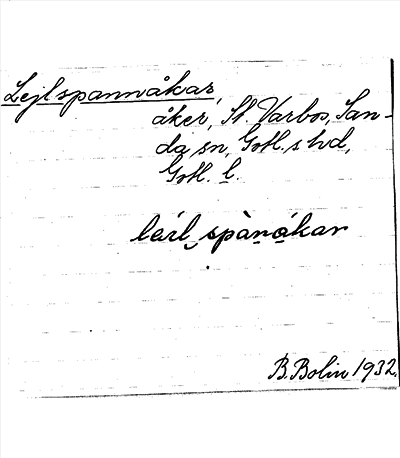 Lejlspannåkar,
åker, St. Varbos, San-
da sn, Gotl. s hd,
Gotl. l.
leil spànåkar
B. Bolin 1932.